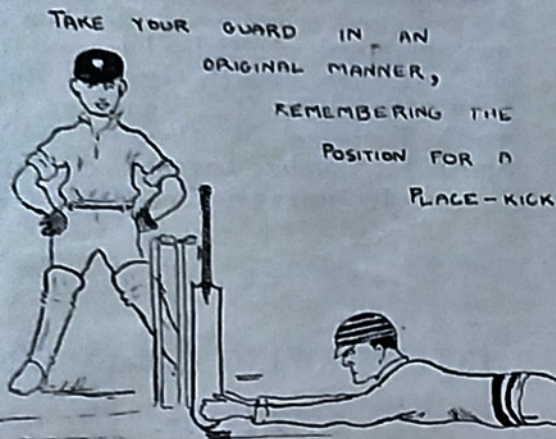 TAKE YOUR GUARD IN AN
ORIGINAL MANNER,
REMEMBERING THE
POSITION FOR A
PLACE-KICK